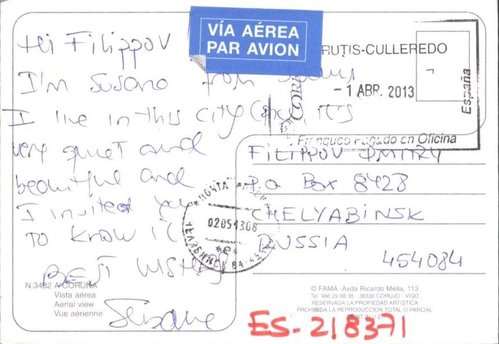 Hi Filippov
I'm Susana from
I live in this city
very quiet and
beautiful and
I invited you
to know it
BEST WISHES
Susana
N.3482 A CORUÑA
Vista aérea
Aerial view
Vue aérienne
VÍA AÉREA
PAR AVION
RUTIS-CULLEREDO
-1 ABR. 2013
España
CORREOS
Franqueo Pagado en Oficina
FILIPPOV DMITRY
P.O Box 8428
CHELYABINSK
RUSSIA
454084
ПОЧТА
02051308
ЧЕЛЯБИНСК 84
© FAMA -Avda Ricardo Mella, 113
36330 CORUJO - VIGO
RESERVADA LA PROPIEDAD ARTISTICA
PROHIBIDA LA REPRODUCCION TOTAL O PARCIAL
ES-218371